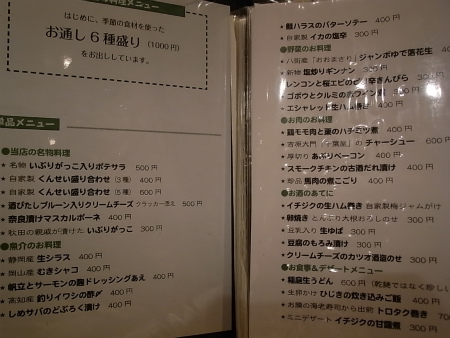 料理メニュー
はじめに、季節の食材を使った
お通し6種盛り (1000円)
をお出ししています。
単品メニュー
●当店の名物料理
★ 名物 いぶりがっこ入りポテサラ 500円
★ 自家製 くんせい盛り合わせ (3種) 400円
★ 自家製 くんせい盛り合わせ (5種) 500円
★ 酒びたしプルーン入りクリームチーズ クラッカー添え 500円
★ 奈良漬けマスカルポーネ 400円
★ 秋田の親戚が漬けた いぶりがっこ 300円
●魚介のお料理
★ 静岡産 生シラス 400円
★ 岡山産 むきシャコ 400円
★ 帆立とサーモンの麹ドレッシングあえ 400円
★ 高知産 釣りイワシの酢〆 400円
★ しめサバのどぶろく漬け 400円
★ 鮭ハラスのバターソテー 400円
★ 自家製 イカの塩辛 300円
●野菜のお料理
★ 八街産「おおまさり」ジャンボゆで落花生 400円
★ 新物 塩炒りギンナン 300円
★ レンコンと桜エビのピリ辛きんぴら 300円
★ ゴボウとクルミの赤ワイン煮 300円
★ エシャレット生ハム巻き 400円
●お肉のお料理
★ 鶏モモ肉と栗のハチミツ煮 400円
★ 吉原大門 の チャーシュー 600円
★ 厚切り あぶりベーコン 400円
★ スモークチキンの古酒だれ漬け 400円
★ 珍品 馬肉の煮こごり 400円
●お酒のあてに
★ イチジクの生ハム巻き 自家製梅ジャムがけ
★ 卵焼き とんぶり大根おろしのせ 300円
★ 豆乳入り 生ゆば 300円
★ 豆腐のもろみ漬け 300円
★ クリームチーズのカツオ酒盗のせ 300円
●お食事&デザートメニュー
★ 稲庭生うどん 600円 (乾麺ではなく珍しい
★ 生卵かけ ひじきの炊き込みご飯 400円
★ お隣の海老寿司から出前 トロタク巻き 70
★ ミニデザート イチジクの甘露煮 300円